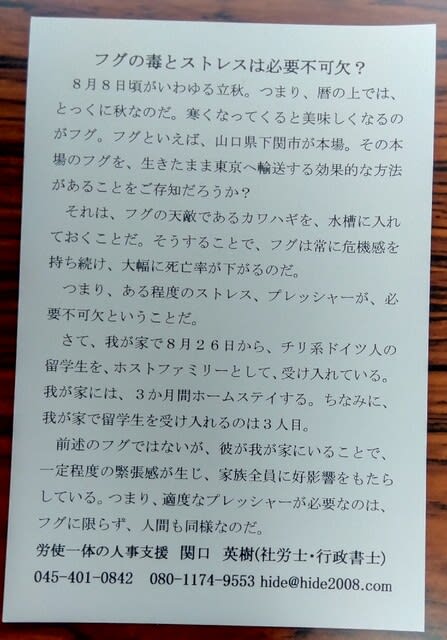 フグの毒とストレスは必要不可欠？
８月８日頃がいわゆる立秋。つまり、暦の上では、
とっくに秋なのだ。寒くなってくると美味しくなるの
がフグ。フグといえば、山口県下関市が本場。その本
場のフグを、生きたまま東京へ輸送する効果的な方法
があることをご存知だろうか？
それは、フグの天敵であるカワハギを、水槽に入れ
ておくことだ。そうすることで、フグは常に危機感を
持ち続け、大幅に死亡率が下がるのだ。
つまり、ある程度のストレス、プレッシャーが、必
要不可欠ということだ。
さて、我が家で８月２６日から、チリ系ドイツ人の
留学生を、ホストファミリーとして、受け入れている。
我が家には、３か月間ホームステイする。ちなみに、
我が家で留学生を受け入れるのは３人目。
前述のフグではないが、彼が我が家にいることで、
一定程度の緊張感が生じ、家族全員に好影響をもたら
している。つまり、適度なプレッシャーが必要なのは、
フグに限らず、人間も同様なのだ。
労使一体の人事支援　関口　英樹(社労士・行政書士)
045-401-0842　080-1174-9553 hide@hide2008.com